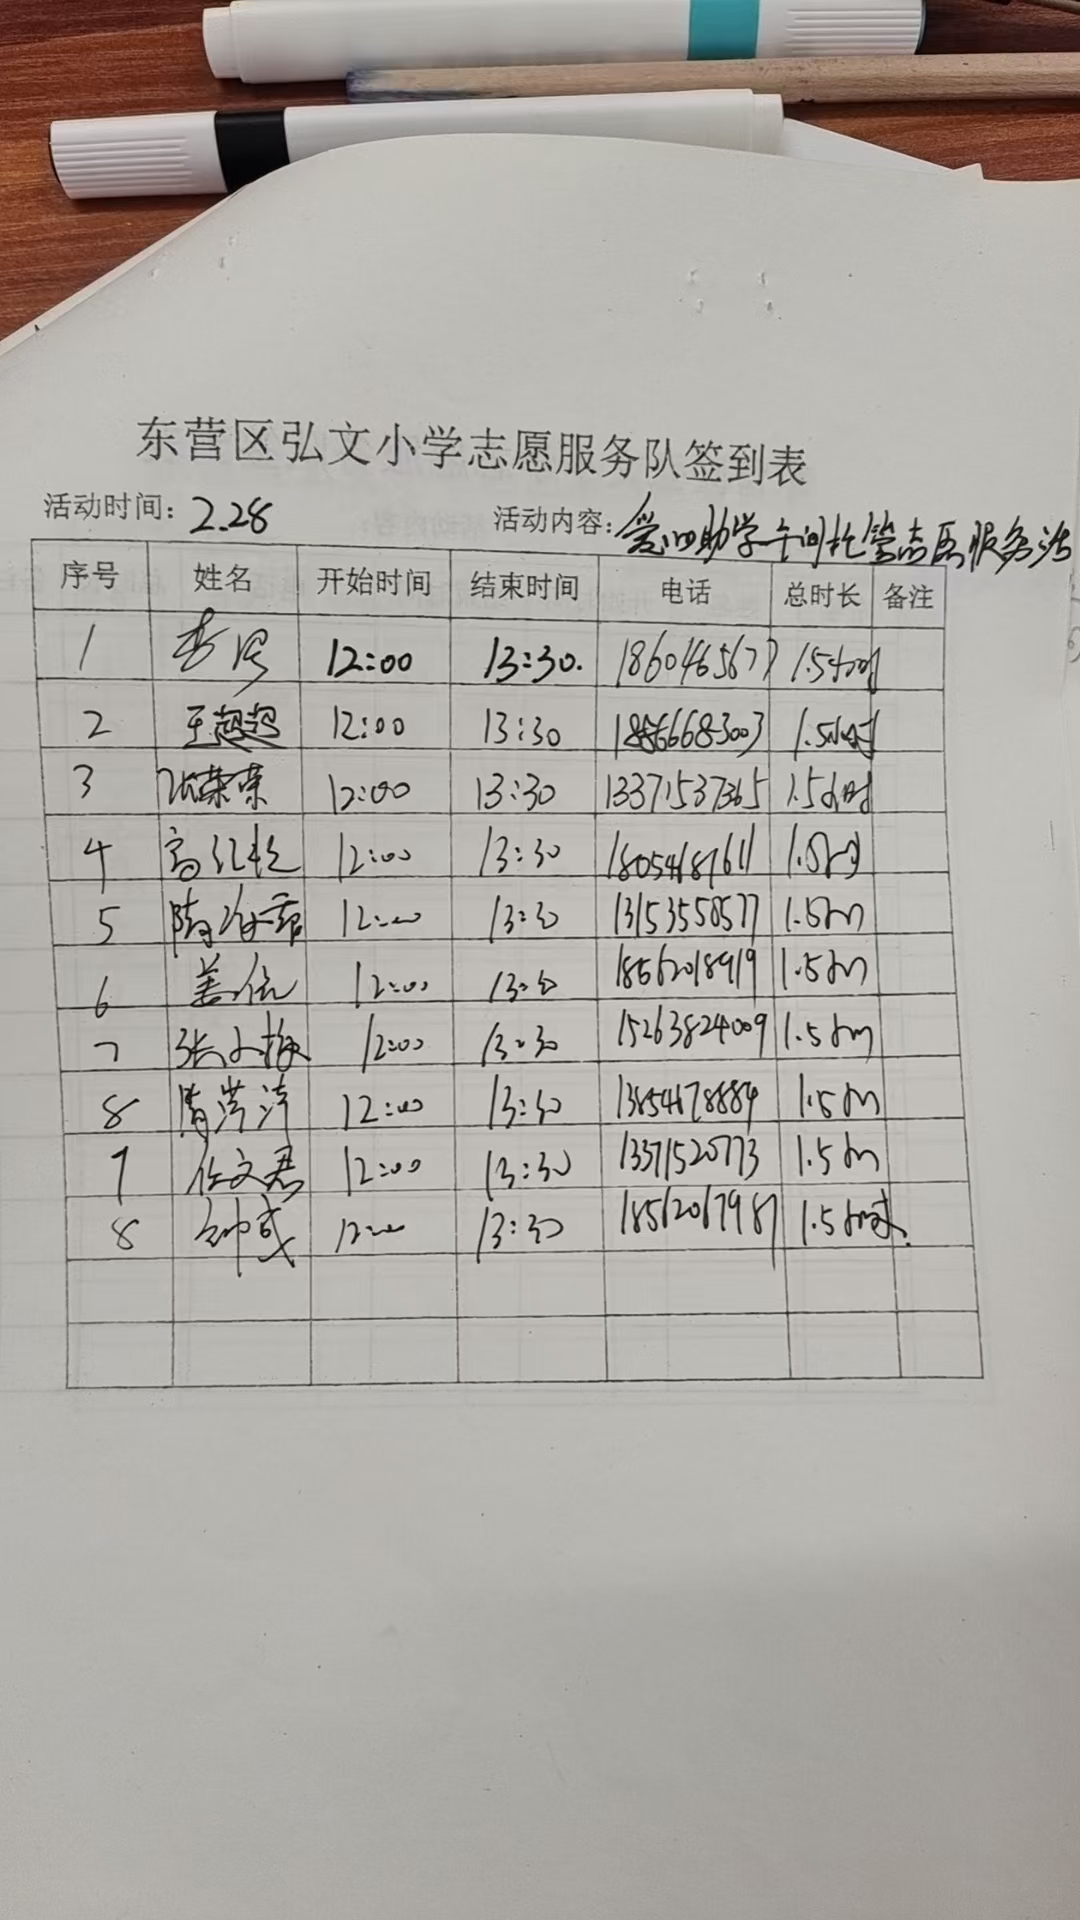 东营区弘文小学志愿服务队签到表
活动时间：2.28 活动内容：爱心助学午间托管志愿服务活
序号 姓名 开始时间 结束时间 电话 总时长 备注
1 12:00 13:30. 18604656777 1.5小时
2 王超超 12:00 13:30 18866683003 1.5小时
3 张荣荣 12:00 13:30 13371537365 1.5小时
4 高红 12:00 13:30 18054687611 1.5小时
5 隋 12:00 13:30 13153558577 1.5小时
6 盖 12:00 13:30 18562018919 1.5小时
7 张小梅 12:00 13:30 15263824009 1.5小时
8 萍萍 12:00 13:30 13854678884 1.5小时
9 任文君 12:00 13:30 13371520773 1.5小时
8 12:00 13:30 18562067987 1.5小时